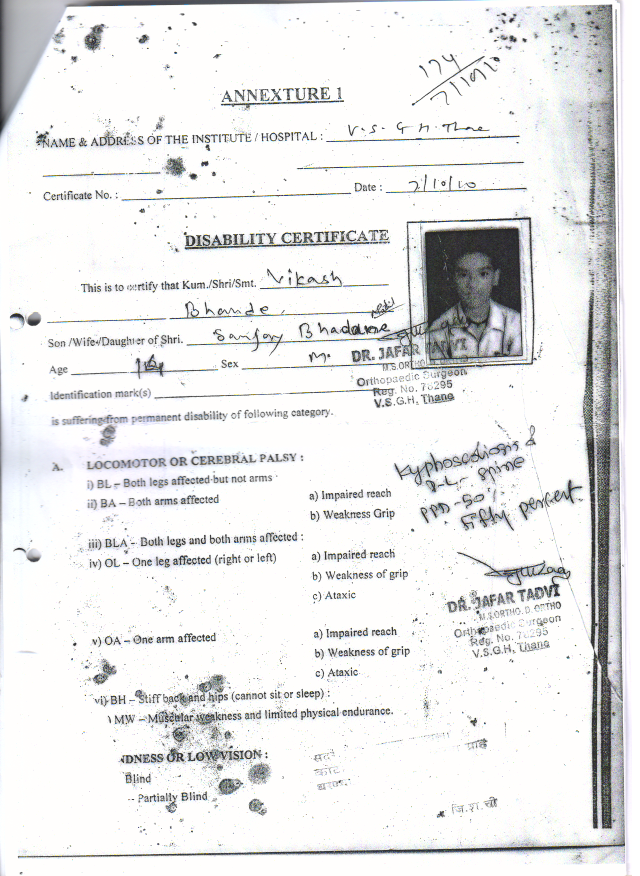 174
7/10/10
ANNEXTURE 1
NAME & ADDRESS OF THE INSTITUTE / HOSPITAL : V.S.G.H. Thane
Certificate No. : Date : 7/10/10
DISABILITY CERTIFICATE
This is to certify that Kum./Shri/Smt. Vikash
Bhande
Son /Wife/Daughter of Shri. Sanjay
Age Sex M.
DR. JAFAR TADVI
M.S.ORTHO. D. ORTHO
Orthopaedic Surgeon
Reg. No. 70295
V.S.G.H, Thana
Identification mark(s)
is suffering from permanent disability of following category.
A. LOCOMOTOR OR CEREBRAL PALSY :
Kyphoscoliosis of
D-L- spine
PPD-50%
Fifty percent.
i) BL – Both legs affected but not arms
ii) BA – Both arms affected a) Impaired reach
b) Weakness Grip
iii) BLA – Both legs and both arms affected :
iv) OL – One leg affected (right or left) a) Impaired reach
b) Weakness of grip
c) Ataxic
DR. JAFAR TADVI
M.S.ORTHO. D. ORTHO
Orthopaedic Surgeon
Reg. No. 70295
V.S.G.H, Thana
v) OA – One arm affected a) Impaired reach
b) Weakness of grip
c) Ataxic
vi) BH – Stiff back and hips (cannot sit or sleep) :
) MW – Muscular weakness and limited physical endurance.
NDNESS OR LOW VISION :
Blind
-- Partially Blind
जि.श.ची